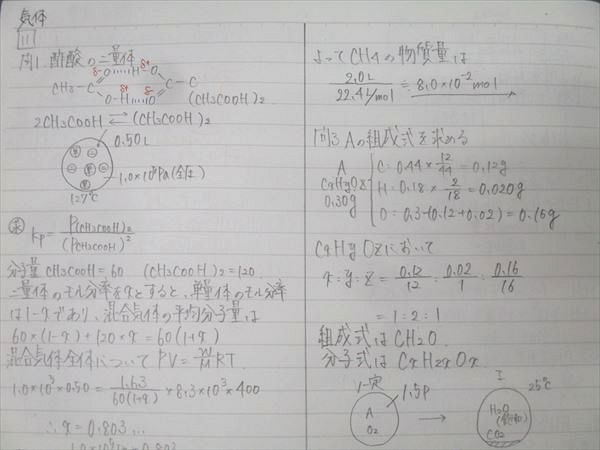 気体
[111]
問1. 酢酸の二量体
δ- O H δ+ O
CH3 - C C - C
O - H O
δ+ δ- (CH3COOH)2
2CH3COOH ⇄ (CH3COOH)2
0.50L
1.0×10⁵Pa(全圧)
127℃
求 Kp = P(CH3COOH)2 / (PCH3COOH)²
分子量 CH3COOH = 60 (CH3COOH)2 = 120.
二量体のモル分率をxとすると、単量体のモル分率
は1-xであり、混合気体の平均分子量は
60×(1-x)+120×x = 60(1+x)
混合気体全体について PV = w/M RT.
1.0×10⁵×0.50 = 1.63 / 60(1+x) × 8.3×10³×400
∴ x = 0.803...
よってCH4の物質量は
2.0L / 22.4L/mol ≒ 8.0×10⁻² mol
問3 Aの組成式を求める
A
CxHyOz
0.30g
C = 0.44 × 12/44 = 0.12g
H = 0.18 × 2/18 = 0.020g
O = 0.3-(0.12+0.02) = 0.16g
CxHyOzにおいて
x:y:z = 0.12/12 : 0.02/1 : 0.16/16
= 1:2:1
組成式はCH2O.
分子式はCxH2xOx
V一定
1.5P
A
O2
→
I
25℃
H2O
(飽和)
CO2